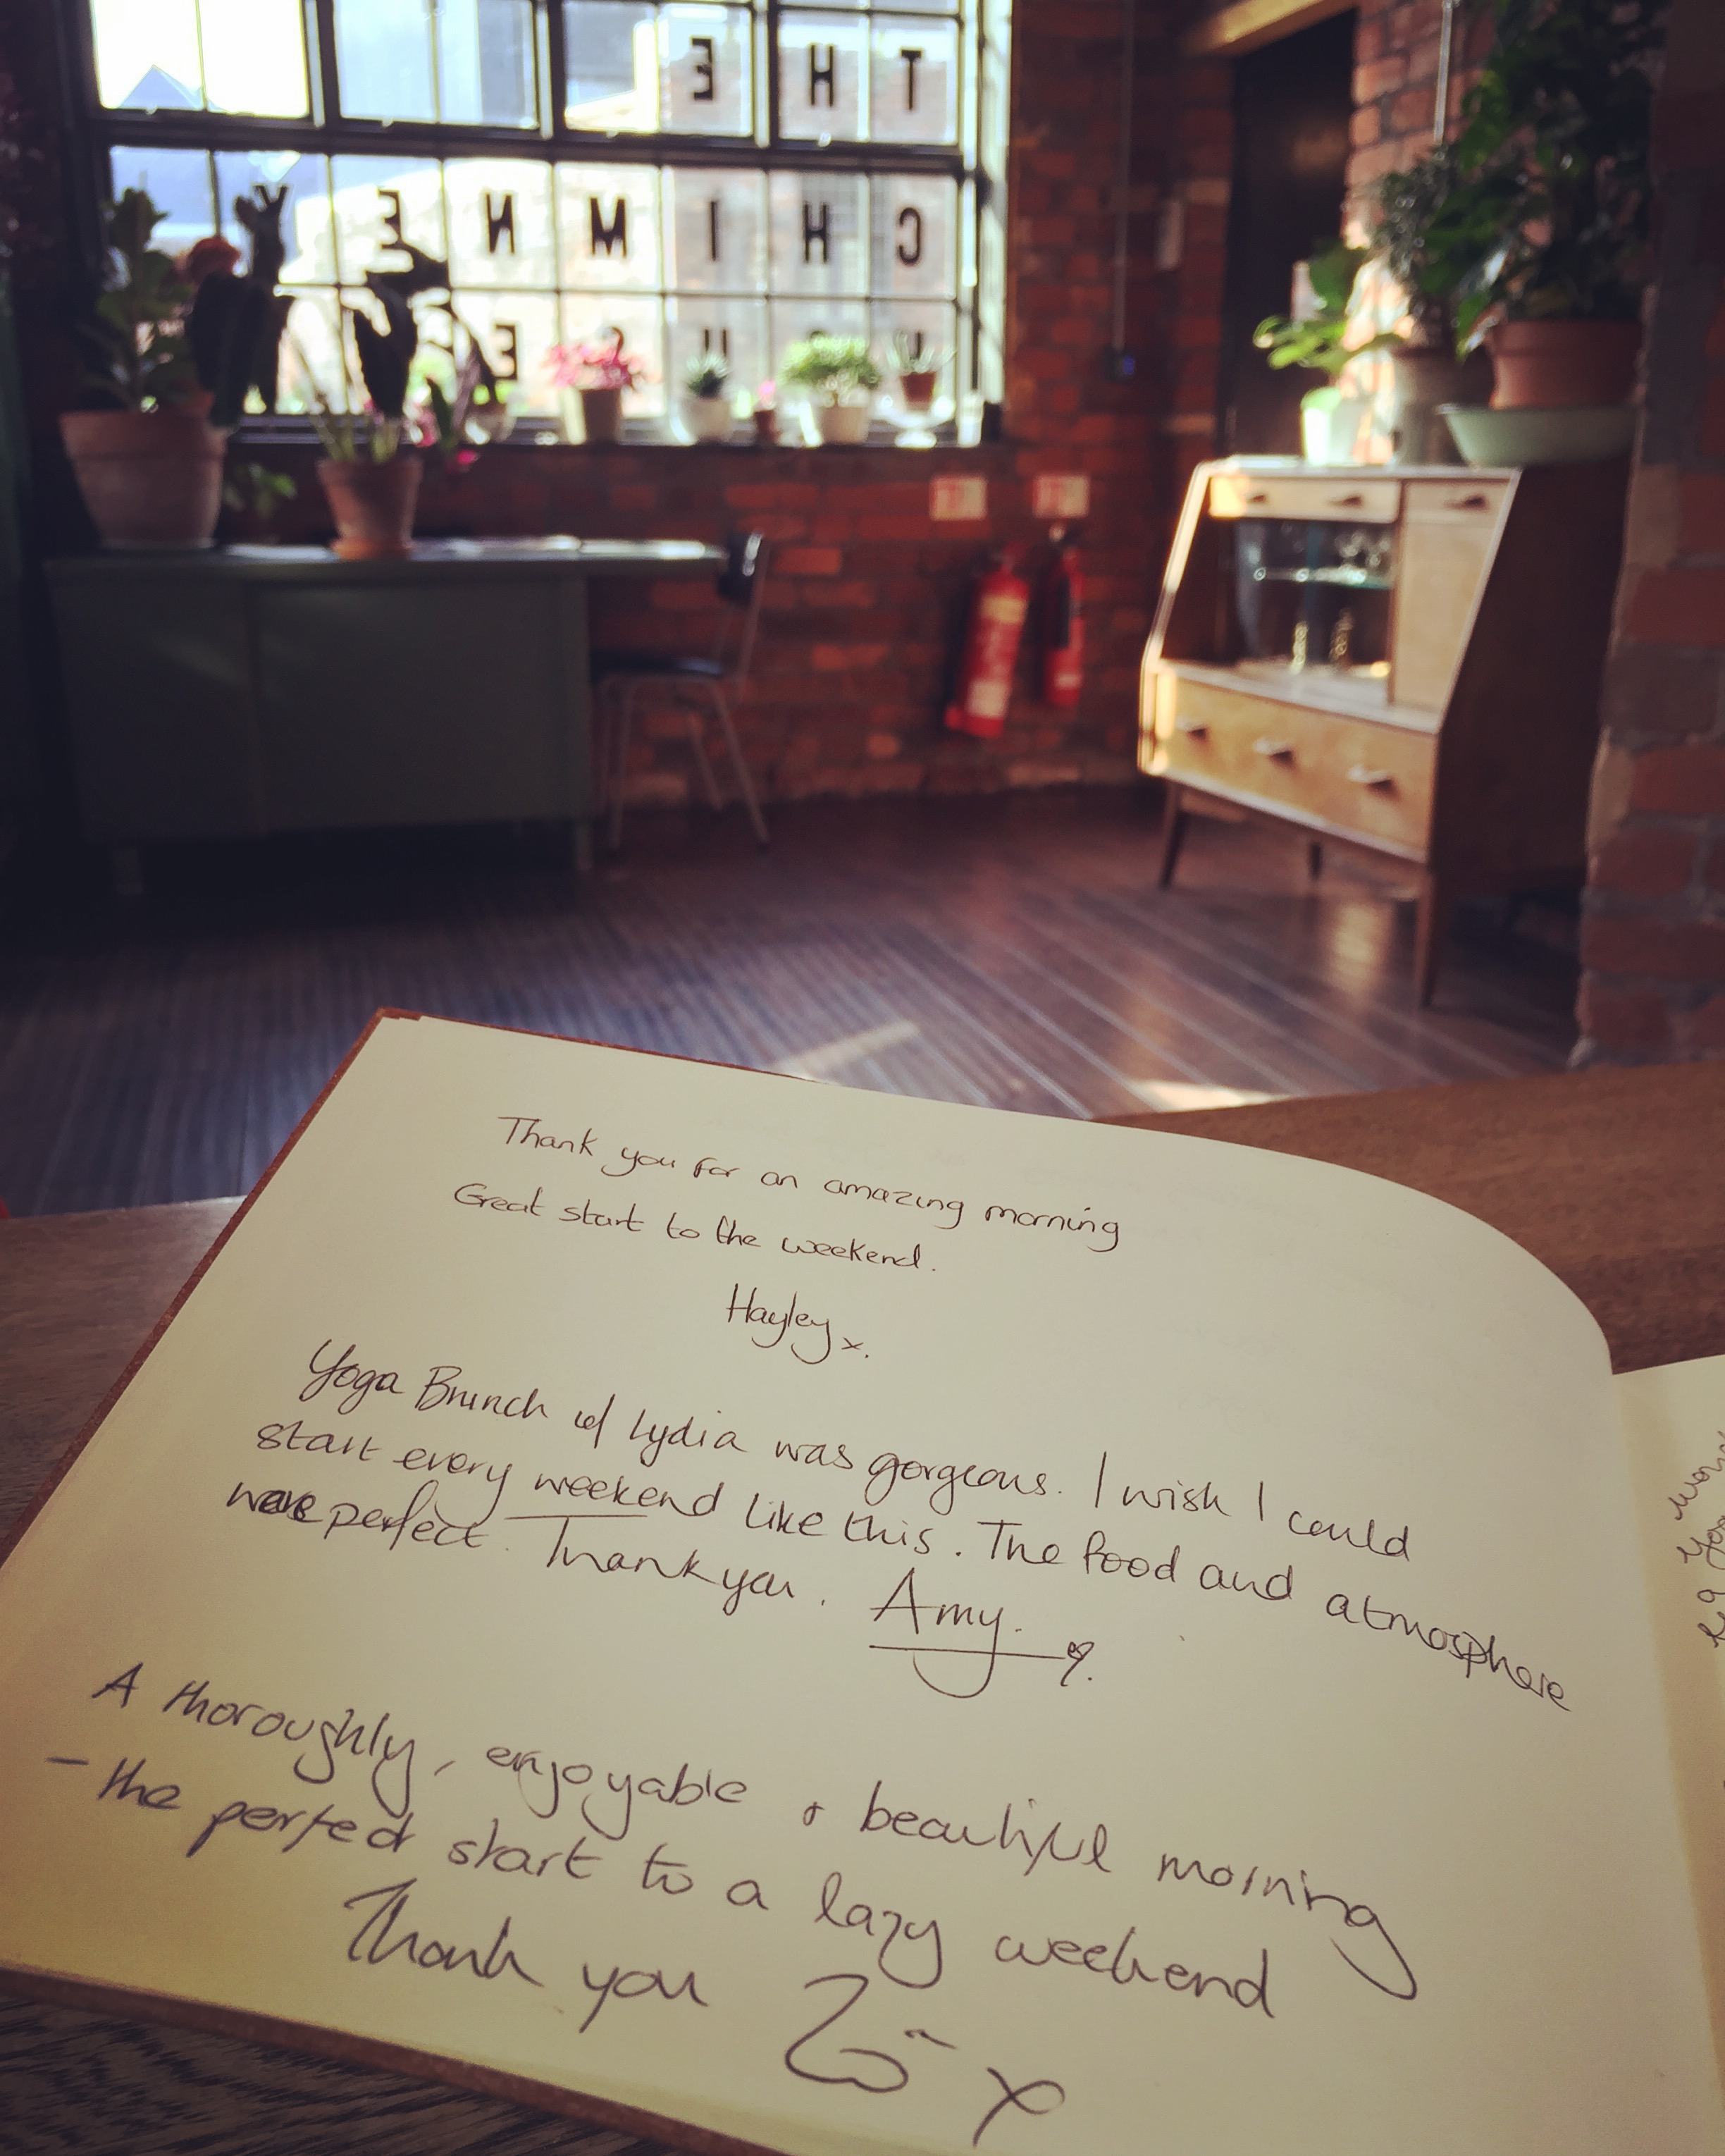 THE
CHIMNEY
HOUSE
Thank you for an amazing morning
Great start to the weekend.
Hayley x.
Yoga Brunch w/ Lydia was gorgeous. I wish I could
start every weekend like this. The food and atmosphere
were perfect. Thank you. Amy.
A thoroughly, enjoyable & beautiful morning
- the perfect start to a lazy weekend
Thank you Zoë x